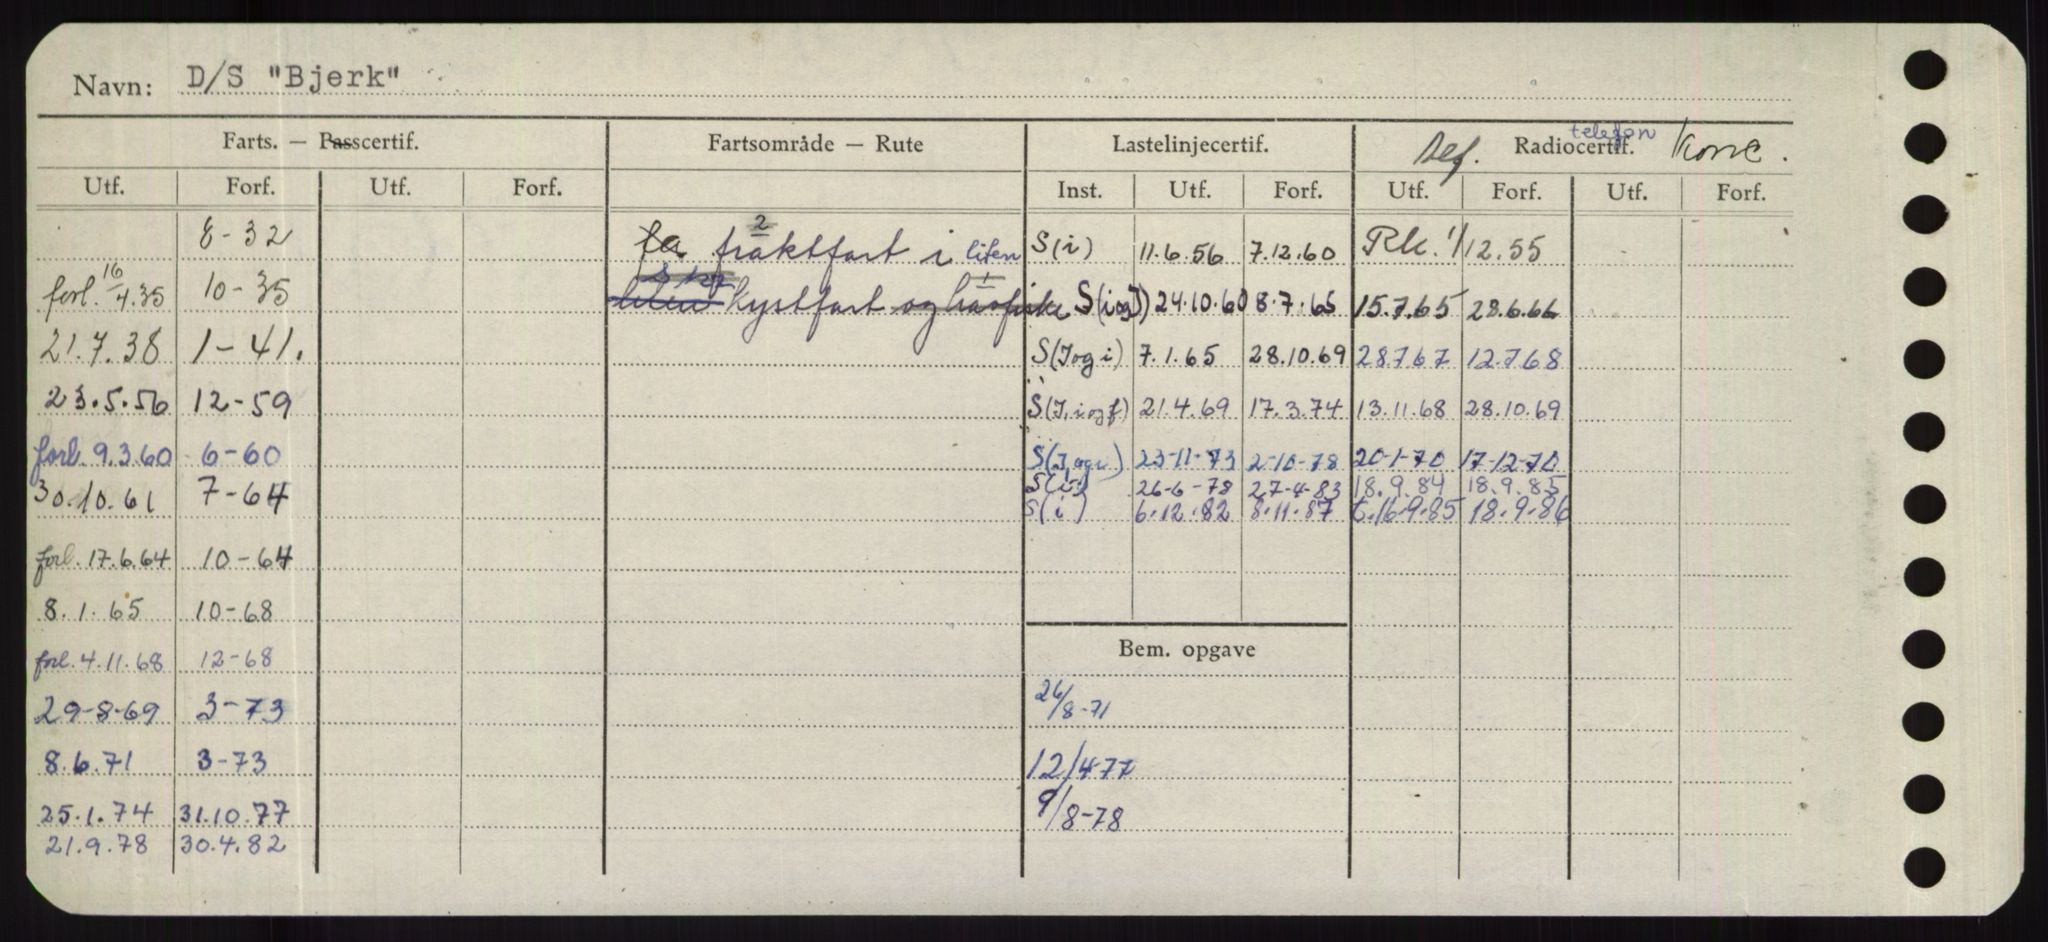 Navn: D/S "Bjerk"
Farts. — Passcertif. Fartsområde — Rute Lastelinjecertif. Def. Radiotelefoncertif. Konc.
Utf. Forf. Utf. Forf. Inst. Utf. Forf. Utf. Forf. Utf. Forf.
8-32 fraktfart i liten S(i) 11.6.56 7.12.60 Rk. 1/12.55
forl. 16/4.35 10-35 kystfart og havfiske S(i og J) 24.10.60 8.7.65 15.7.65 28.6.66
21.7.38 1-41. S(J og i) 7.1.65 28.10.69 28.7.67 12.7.68
23.5.56 12-59 S(J, i og f) 21.4.69 17.3.74 13.11.68 28.10.69
forl. 9.3.60 6-60 S(J, og i) 23-11-73 2-10-78 20-1-70 17-12-70
30.10.61 7-64 26-6-78 27-4-83 18.9.84 18.9.85
S(i) 6.12.82 8.11.87 t.16.9.85 18.9.86
forl. 17.6.64 10-64
8.1.65 10-68
forl. 4.11.68 12-68 Bem. opgave
29-8-69 3-73 26/8-71
8.6.71 3-73 12/4-77
25.1.74 31.10.77 9/8-78
21.9.78 30.4.82